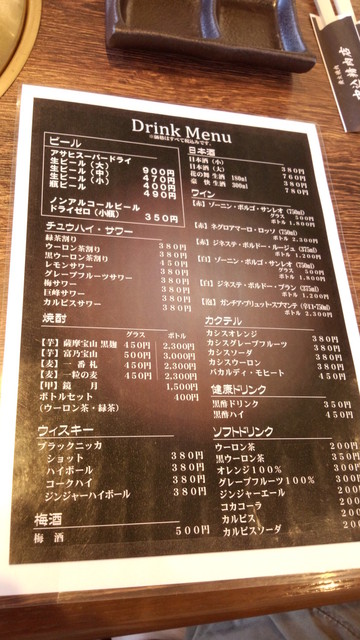 Drink Menu
※価格はすべて税込みです。
ビール
アサヒスーパードライ
生ビール（大） 900円
生ビール（中） 470円
生ビール（小） 400円
瓶ビール 490円
ノンアルコールビール
ドライゼロ（小瓶） 350円
チュウハイ・サワー
緑茶割り 380円
ウーロン茶割り 380円
黒ウーロン茶割り 450円
レモンサワー 380円
グレープフルーツサワー 380円
梅サワー 380円
巨峰サワー 380円
カルピスサワー 380円
焼酎
グラス ボトル
【芋】薩摩宝山 黒麹 450円 2,300円
【芋】富乃宝山 500円 3,000円
【麦】一番札 450円 2,300円
【麦】一粒の麦 450円 2,300円
【甲】鏡月 1,500円
ボトルセット 400円
(ウーロン茶・緑茶)
ウィスキー
ブラックニッカ
ショット 380円
ハイボール 380円
コークハイ 380円
ジンジャーハイボール 380円
梅酒
梅 酒 500円
日本酒
日本酒（小） 380円
日本酒（大） 760円
花の舞 生酒 180ml 380円
快 生酒 300ml 780円
ワイン
【赤】ゾーニン・ボルゴ・サンレオ (750ml)
グラス 500円
ボトル 1,800円
【赤】ネグロアマーロ・ロッソ (750ml)
ボトル 2,300円
【赤】ジネステ・ボルドー・ルージュ (375ml)
ボトル 1,200円
【白】ゾーニン・ボルゴ・サンレオ (750ml)
グラス 500円
ボトル 1,800円
【白】ジネステ・ボルドー・ブラン (375ml)
ボトル 1,200円
【泡】ガンチア・ブリュット・スプマンテ (辛口・750ml)
ボトル 2,300円
カクテル
カシスオレンジ 380円
カシスグレープフルーツ 380円
カシスソーダ 380円
カシスウーロン 380円
バカルディ・モヒート 450円
健康ドリンク
黒酢ドリンク 350円
黒酢ハイ 450円
ソフトドリンク
ウーロン茶 200円
黒ウーロン茶 350円
オレンジ100% 300円
グレープフルーツ100% 300
ジンジャーエール 200
コカコーラ 200
カルピス 200
カルピスソーダ 200